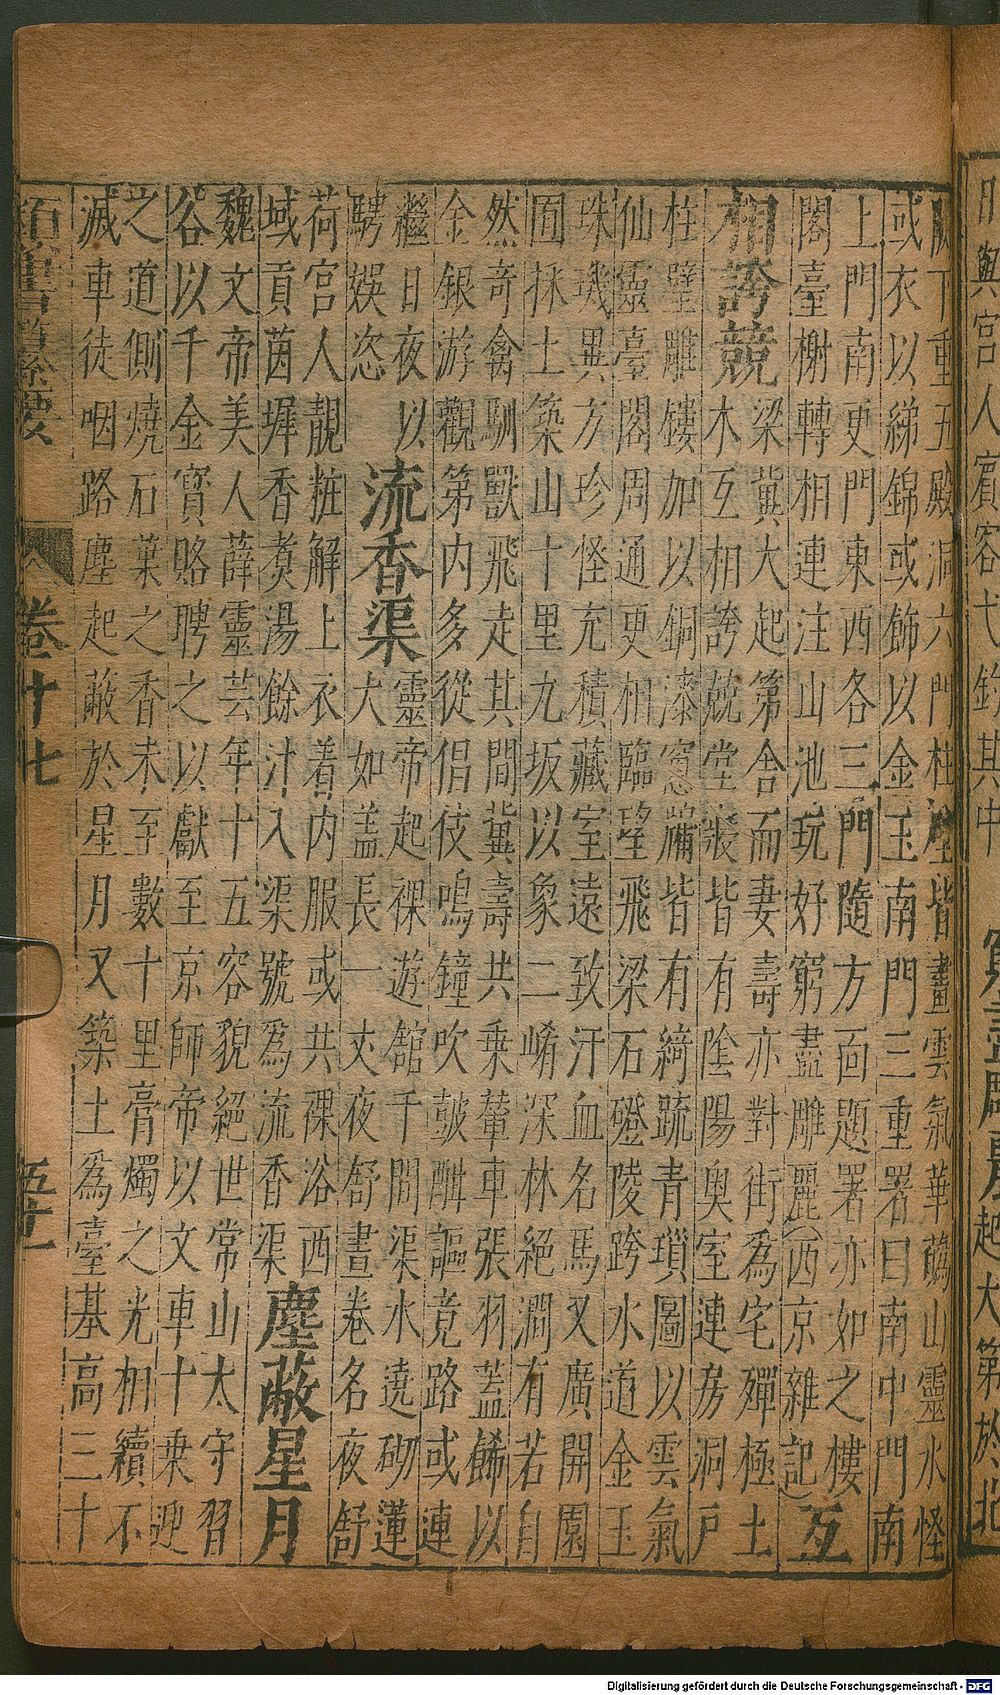 與宮人賓客弋釣其中
起大第於北
閣下重五殿洞六門柱壁皆畫雲氣華蘤山靈水怪
或衣以綈錦或飾以金玉南門三重署曰南中門南
上門南更門東西各三門隨方面題署亦如之樓
閣臺榭轉相連注山池玩好窮盡雕麗(西京雜記)
互
相誇競
梁冀大起第舍而妻壽亦對街爲宅殫極土
木互相誇競堂寝皆有陰陽奥室連房洞戶
柱壁雕鏤加以銅漆窓牖皆有綺疏青瑣圖以雲氣
仙靈臺閣周通更相臨望飛梁石磴陵跨水道金玉
珠璣異方珍怪充積藏室遠致汗血名馬又廣開園
囿採土築山十里九坂以象二崤深林絕澗有若自
然奇禽馴獸飛走其間冀壽共乗輦車張羽蓋餙以
金銀游觀第内多從倡伎鳴鐘吹皷酣謳竟路或連
繼日夜以
騁娛恣
流香渠
靈帝起裸遊舘千間渠水遶砌蓮
大如蓋長一丈夜舒晝卷名夜舒
荷宮人靚粧解上衣着内服或共裸浴西
域貢茵墀香煑湯餘汁入渠號爲流香渠
塵蔽星月
魏文帝美人薛靈芸年十五容貌絕世常山太守習
谷以千金寳賂聘之以獻至京師帝以文車十乗迎
之道側燒石葉之香未至數十里膏燭之光相續不
滅車徒咽路塵起蔽於星月又築土爲臺基高三十
類書纂要
卷十七
五十一
Digitalisierung gefördert durch die Deutsche Forschungsgemeinschaft - DFG